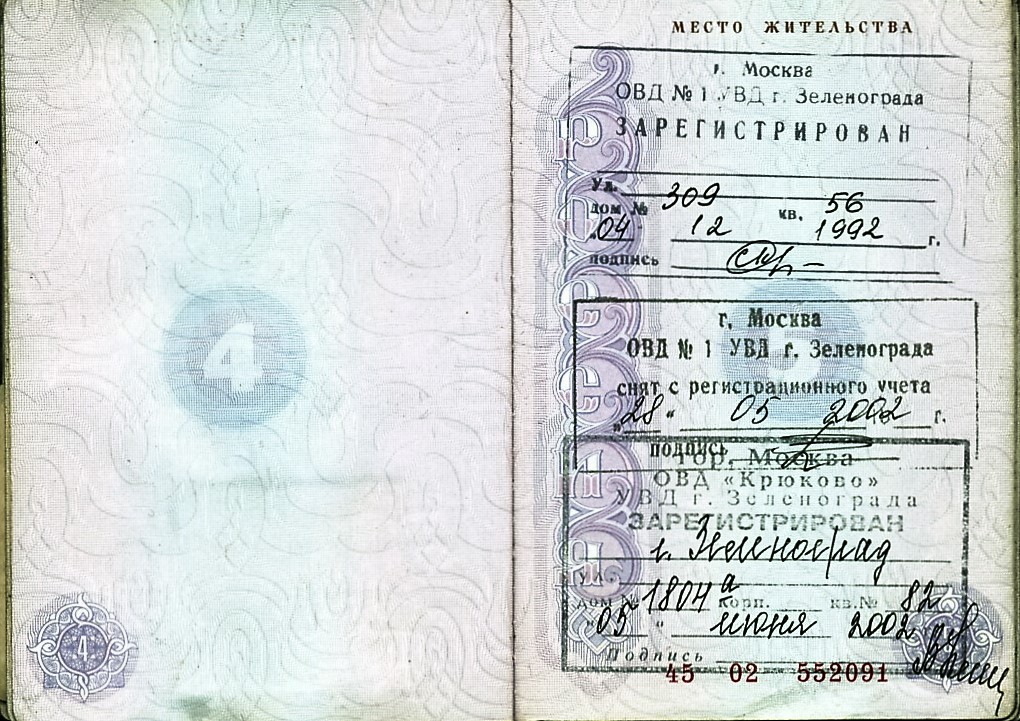 4
4
МЕСТО ЖИТЕЛЬСТВА
г. Москва
ОВД №1 УВД г. Зеленограда
ЗАРЕГИСТРИРОВАН
Ул.
дом № 309 кв. 56
"04" 12 1992 г.
подпись
г. Москва
ОВД № 1 УВД г. Зеленограда
снят с регистрационного учета
"28" 05 2002 г.
подпись
гор. Москва
ОВД «КРЮКОВО»
УВД г. Зеленограда
ЗАРЕГИСТРИРОВАН
г. Зеленоград
Ул.
дом № 1804а корп. кв.№
"05" июня
Подпись
45 02 552091